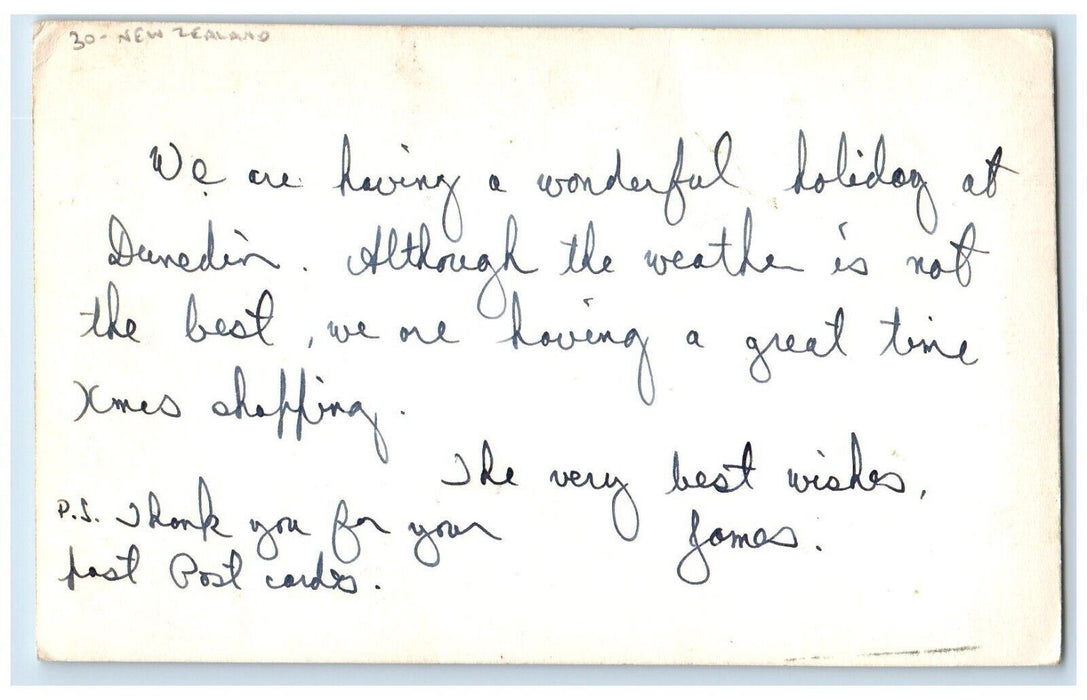 30- NEW ZEALAND
We are having a wonderful holiday at
Dunedin. Although the weather is not
the best, we are having a great time
Xmas shopping.
The very best wishes,
James.
P.S. Thank you for your
past Post cards.